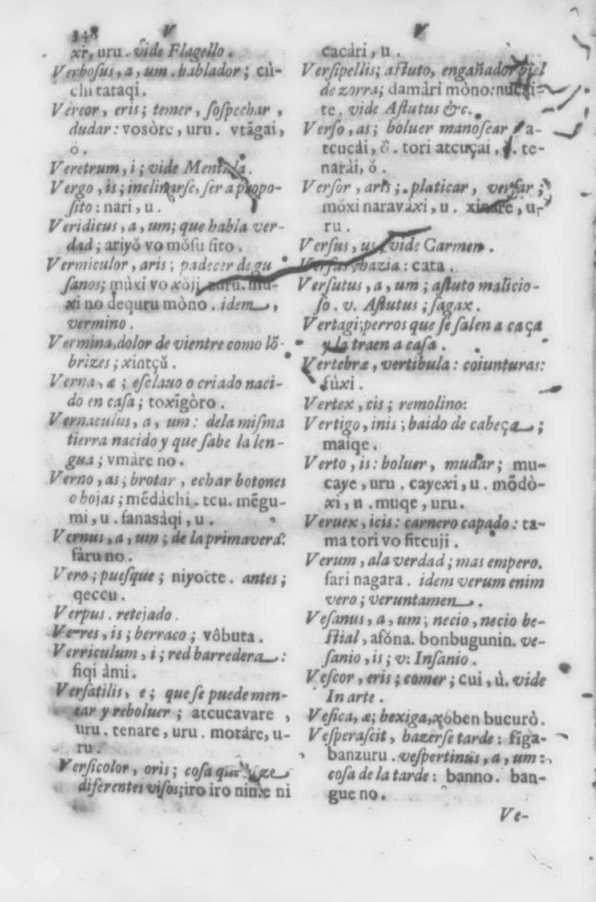 348 V
xi, uru. vide Flagello.
Verbosus, a, um. hablador; cu-
chi tataqi.
Vereor, eris; temer, sospechar,
dudar: vosòre, uru. vtāgai,
ò.
Veretrum, i; vide Mentula.
Vergo, is; inclinarse, ser a propo-
sito: nari, u.
Veridicus, a, um; que habla ver-
dad; ariyǒ vo mǒsu fito.
Vermiculor, aris; padecer de gu
sanos; muxi vo xòji, zuru. mu-
xi no dequru mòno. idem,
vermino.
Vermina, dolor de vientre como lō-
brizes; xiatçǔ.
Verna, æ; esclauo o criado naci-
do en casa; toxigòro.
Vernaculus, a, um: dela misma
tierra nacido y que sabe la len-
gua; vmàre no.
Verno, as; brotar, echar botones
o hojas; mēdàchi. tcu. mēgu-
mi, u. fanasàqi, u.
Vernus, a, um; de la primavera:
fàru no.
Vero; puesque; niyotte. antes;
qeccu.
Verpus. retejado.
Verres, is; berraco; vôbuta.
Verriculum, i; red barredera:
fiqi àmi.
Versatilis, e; que se puede men-
ear y reboluer; atcucavare,
uru. tenare, uru. motàre, u-
ru.
Versicolor, oris; cosa que
diferentes visos; iro iro nimie ni
V
cacàri, u.
Versipellis; astuto, engañador piel
de zorra; damàri mòno:
te. vide Astutus &c.
Verso, as; boluer manosear a-
tcucài, ǒ. tori atcuçai, te-
naràì, ò.
Versor, aris; platicar, versar;
mòxi naravàxi, u. xinàre, u-
ru.
Versus, us; vide Carmen.
Versus, hazia: cata.
Versutus, a, um; astuto malicio-
so. v. Astutus; sagax.
Vertagi; perros que se salen a caça
y la traen a casa.
Vertebræ, vertibula: coiunturas:
fùxi.
Vertex, cis; remolino:
Vertigo, inis; baido de cabeça;
maiqe.
Verto, is: boluer, mudar; mu-
caye, uru. cayexi, u. mǒdò-
xi, u. muqe, uru.
Veruex, icis: carnero capado: ta-
ma tori vo fitcuji.
Verum, ala verdad; mas empero.
sari nagara. idem verum enim
vero; veruntamen.
Vesanus, a, um; necio, necio be-
stial, afóna. bonbugunin. ve-
sanio, is; v. Insanio.
Vescor, eris; comer; cui, ù. vide
In arte.
Vesica, æ; bexiga, xóben bucurò.
Vesperascit, hazerse tarde: figa-
banzuru. vespertinus, a, um:
cosa de la tarde: banno. ban-
gue no.
Ve-